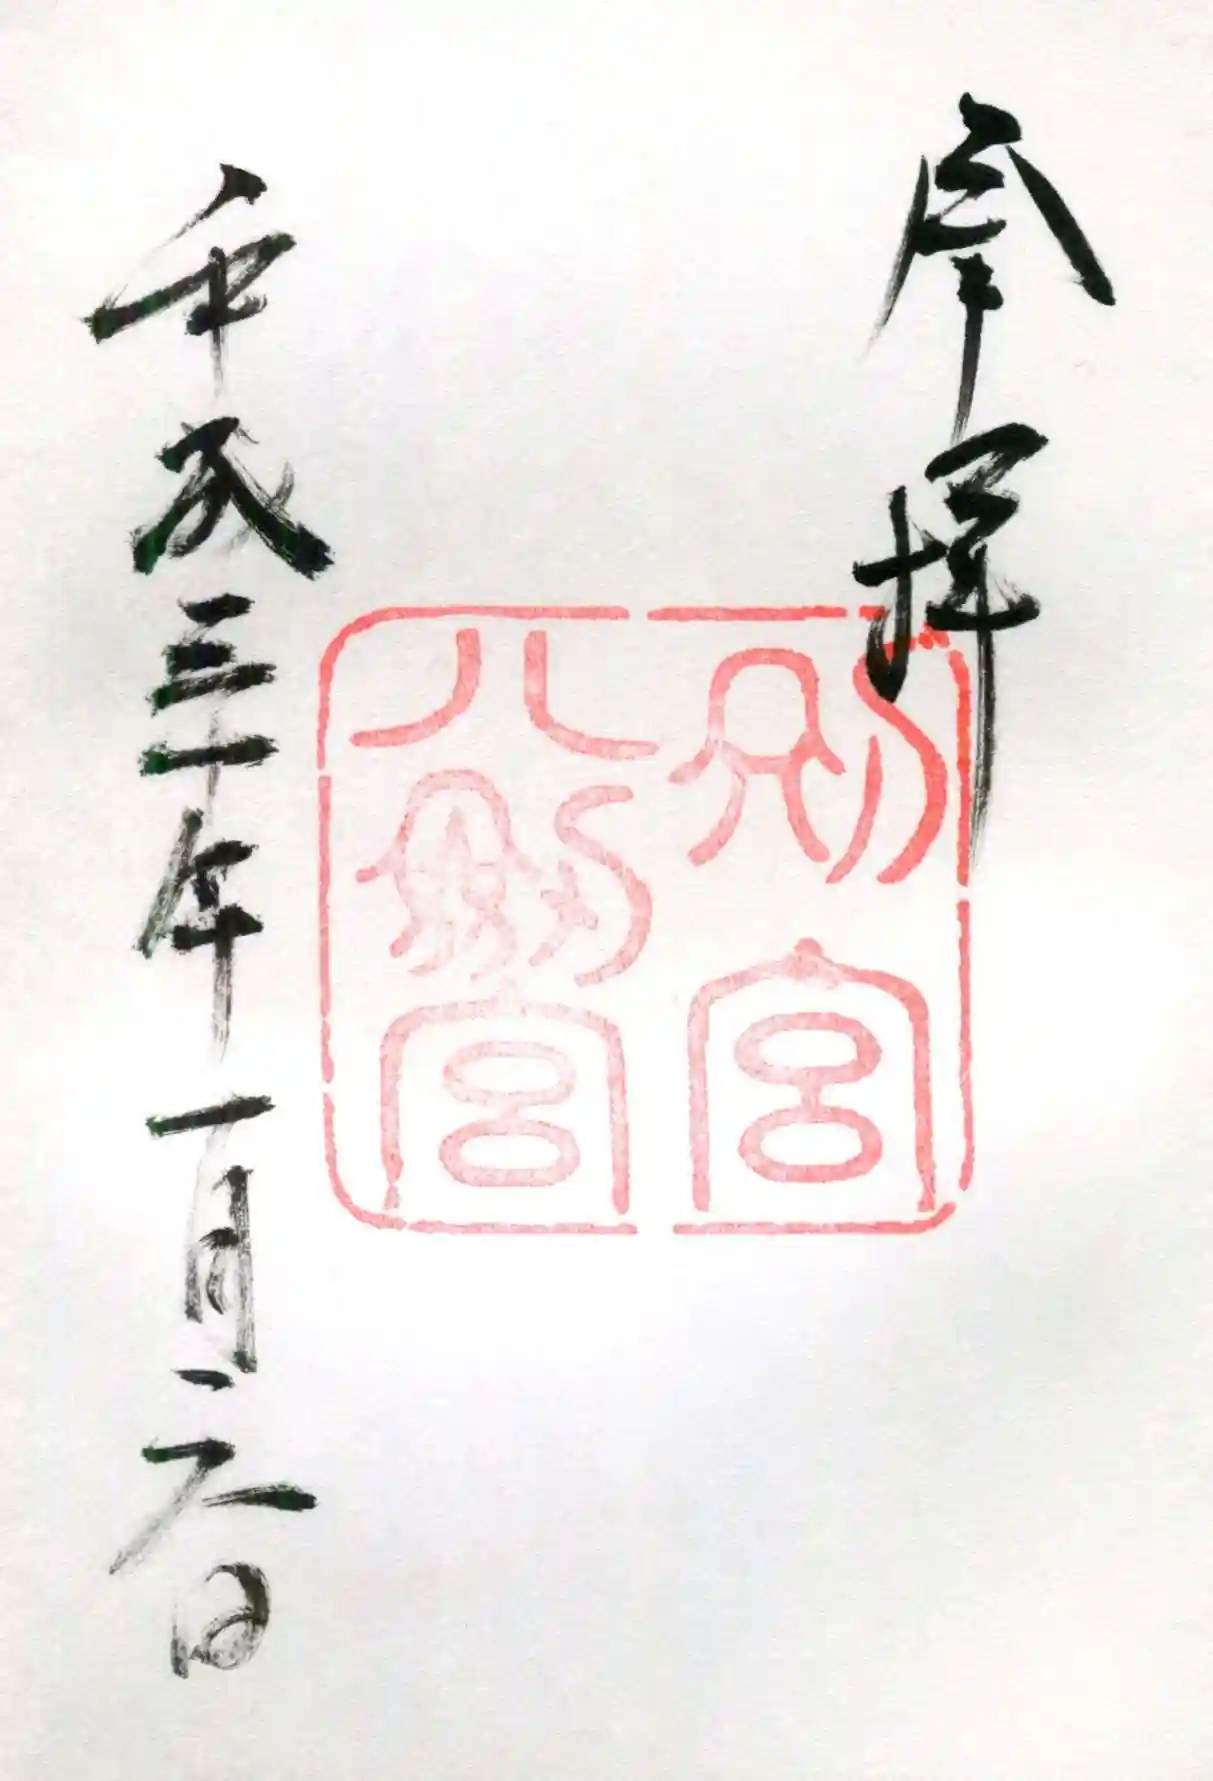 奉拝
別宮
八劔宮
平成三十年一月六日